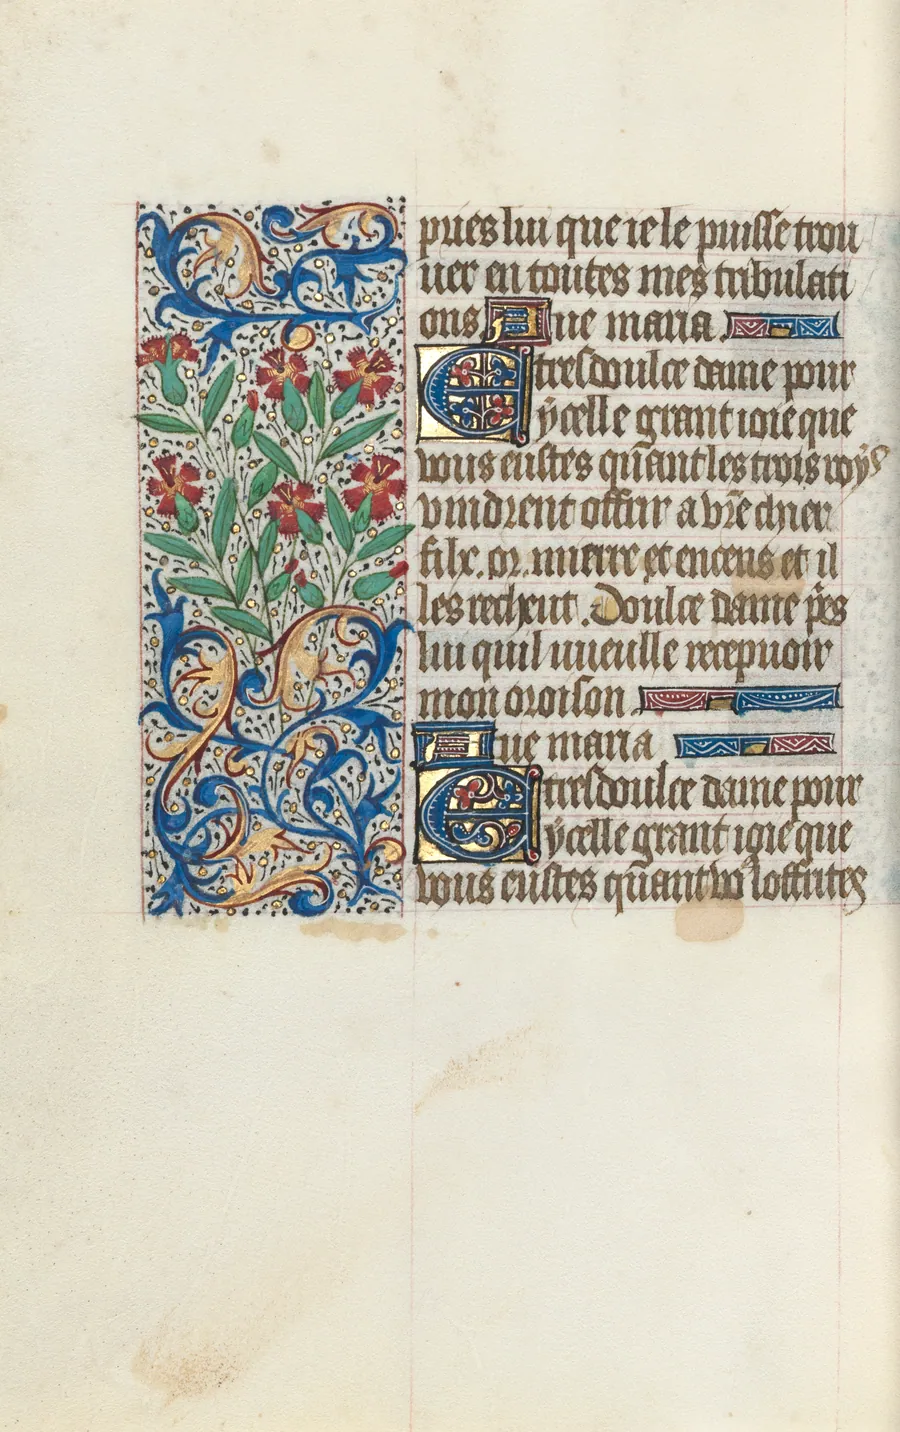 pres lui que ie le puisse trou
uer en toutes mes tribulati
ons Aue maria.
E tresdoulce dame pour
ycelle grant ioie que
vous eustes quant les trois roys
vindrent offrir a vr̃e chier
filx. or. mierre et encens et il
les recheut. Doulce dame pͥes
lui quil vueulle recepuoir
mon oroison.
Aue maria
E tresdoulce dame pour
ycelle grant ioie que
vous eustes quant vo' loffrites